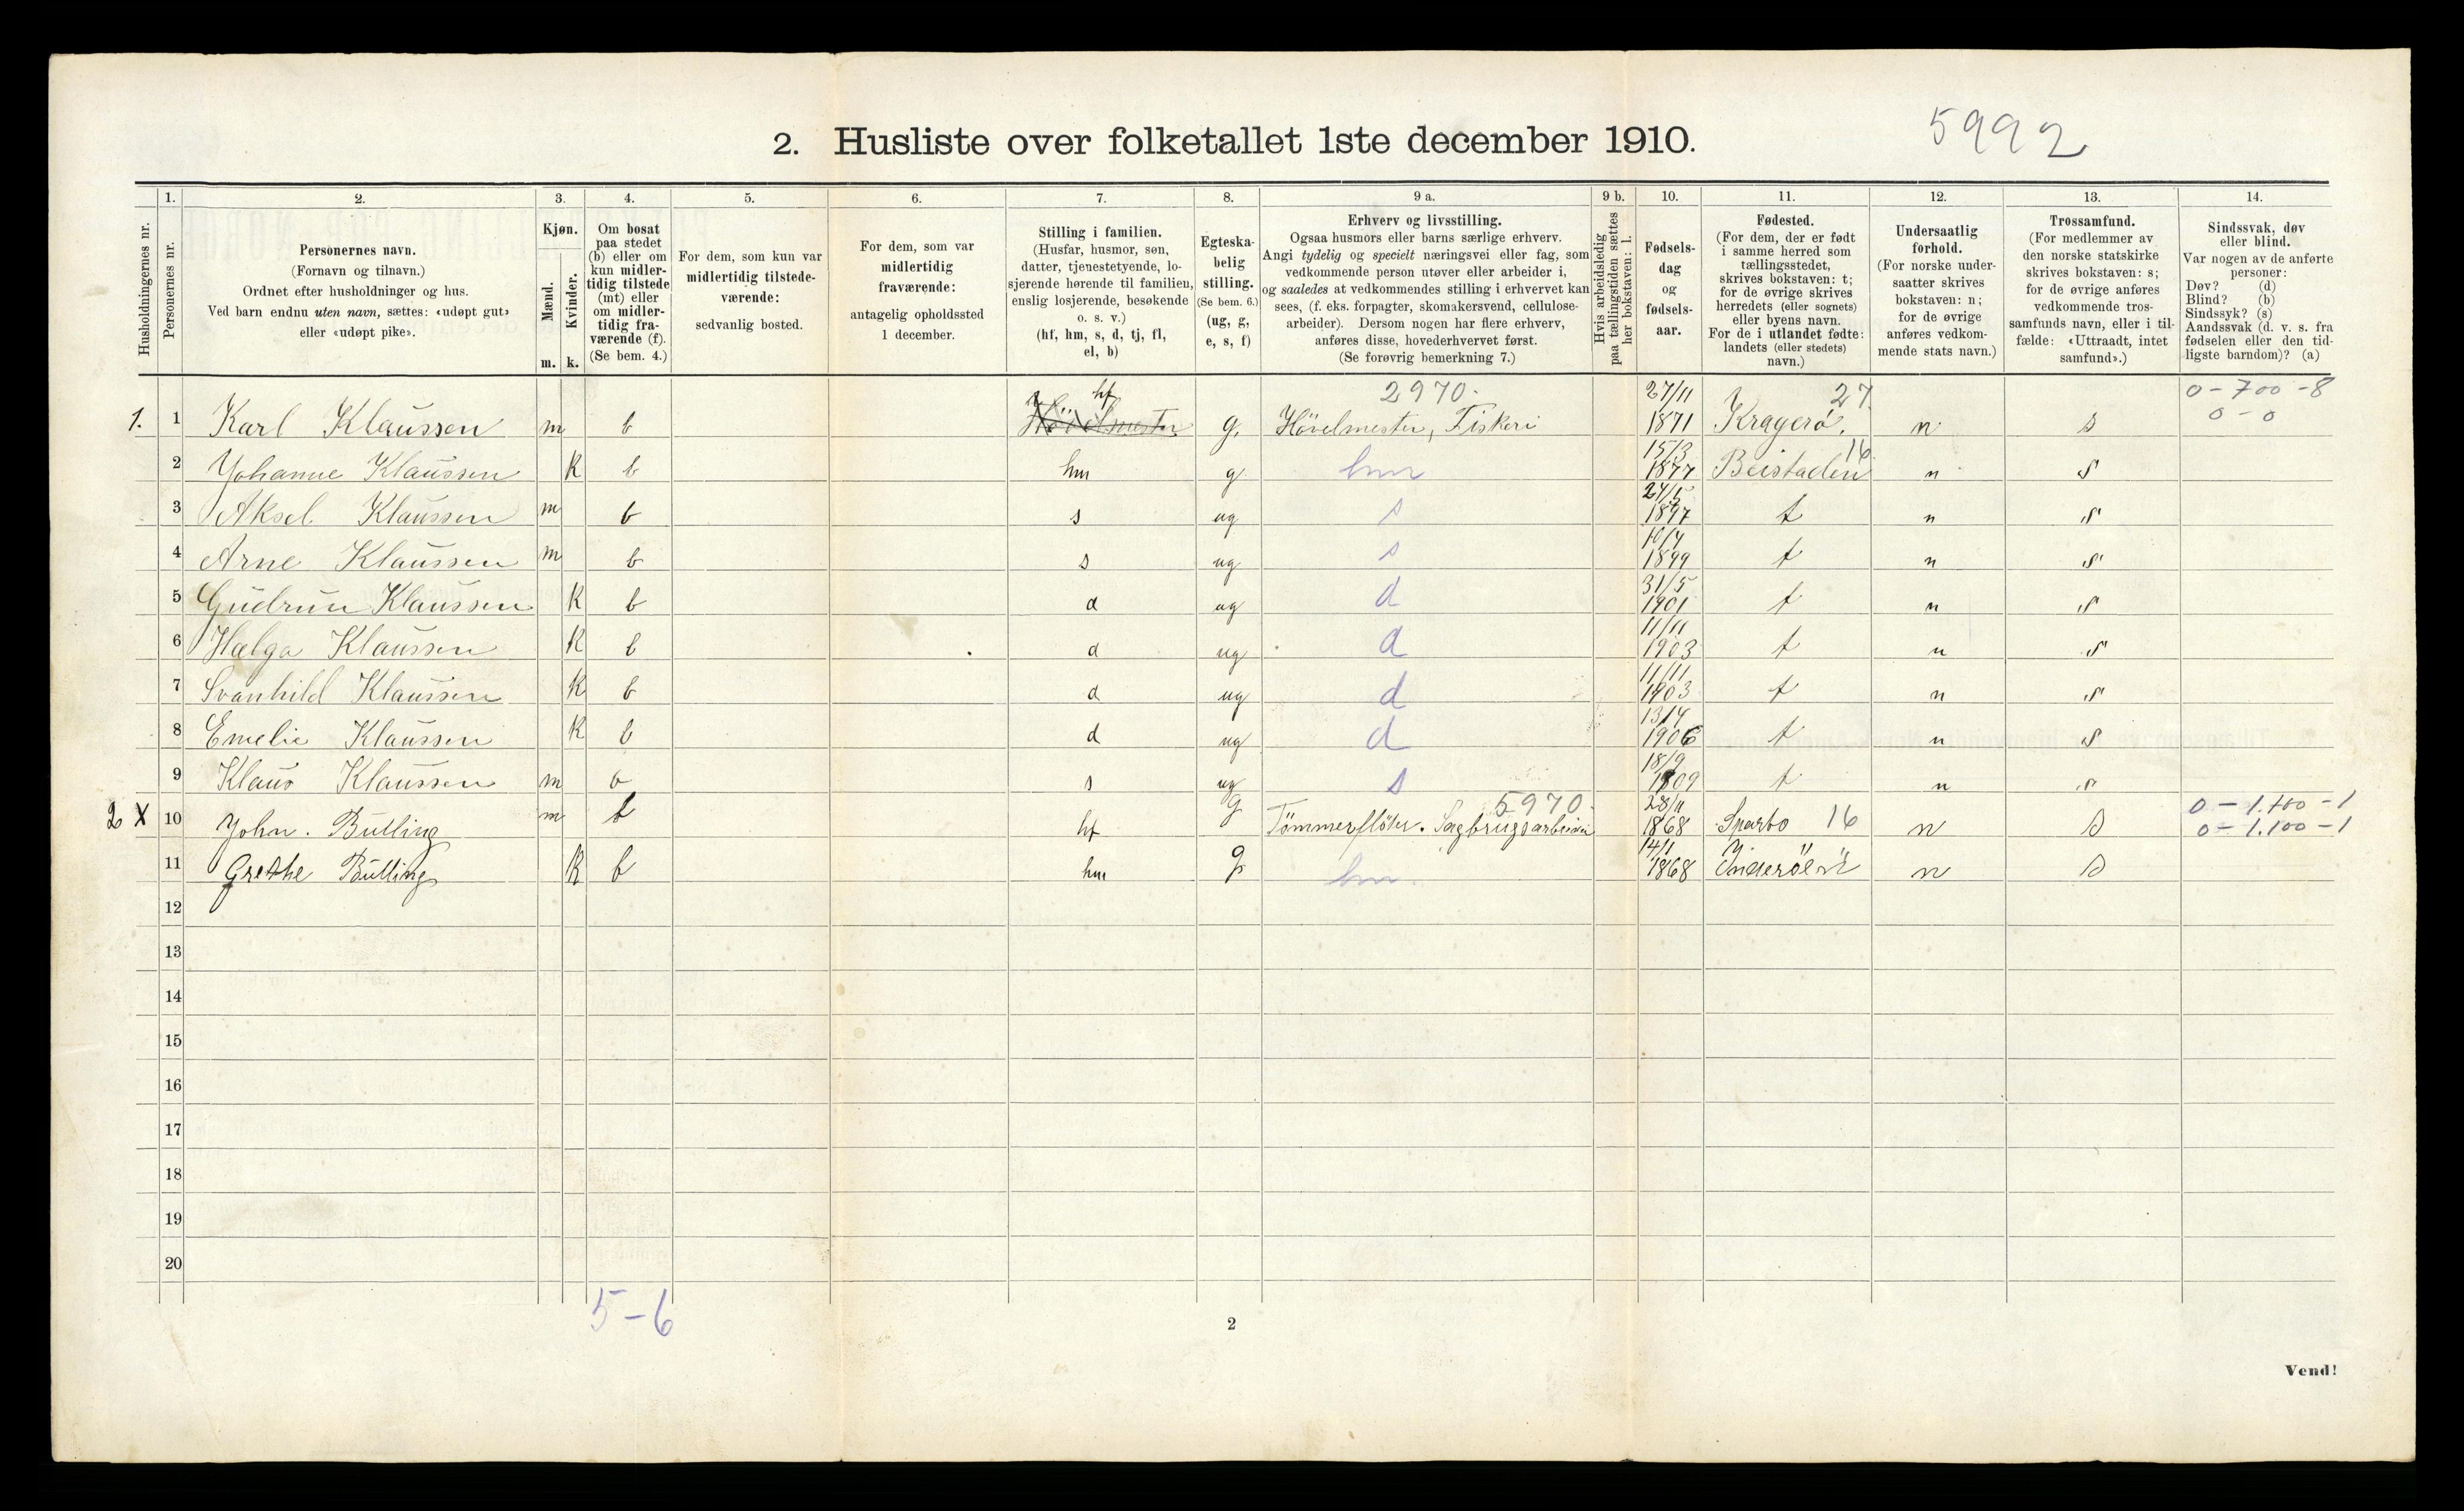 5992
2. Husliste over folketallet 1ste december 1910.
Husholdningernes nr.
1. Personernes nr.
2. Personernes navn. (Fornavn og tilnavn.) Ordnet efter husholdninger og hus. Ved barn endnu uten navn, sættes: «udøpt gut» eller «udøpt pike».
3. Kjøn. Mænd. m. Kvinder. k.
4. Om bosat paa stedet (b) eller om kun midlertidig tilstede (mt) eller om midlertidig fraværende (f). (Se bem. 4.)
5. For dem, som kun var midlertidig tilstedeværende: sedvanlig bosted.
6. For dem, som var midlertidig fraværende: antagelig opholdssted 1 december.
7. Stilling i familien. (Husfar, husmor, søn, datter, tjenestetyende, losjerende hørende til familien, enslig losjerende, besøkende o. s. v.) (hf, hm, s, d, tj, fl, el, b)
8. Egteskabelig stilling. (Se bem. 6.) (ug, g, e, s, f)
9 a. Erhverv og livsstilling. Ogsaa husmors eller barns særlige erhverv. Angi tydelig og specielt næringsvei eller fag, som vedkommende person utøver eller arbeider i, og saaledes at vedkommendes stilling i erhvervet kan sees, (f. eks. forpagter, skomakersvend, cellulosearbeider). Dersom nogen har flere erhverv, anføres disse, hovederhvervet først. (Se forøvrig bemerkning 7.)
9 b. Hvis arbeidsledig paa tællingstiden sættes her bokstaven: l.
10. Fødselsdag og fødselsaar.
11. Fødested. (For dem, der er født i samme herred som tællingsstedet, skrives bokstaven: t; for de øvrige skrives herredets (eller sognets) eller byens navn. For de i utlandet fødte: landets (eller stedets) navn.)
12. Undersaatlig forhold. (For norske undersaatter skrives bokstaven: n; for de øvrige anføres vedkommende stats navn.)
13. Trossamfund. (For medlemmer av den norske statskirke skrives bokstaven: s; for de øvrige anføres vedkommende trossamfunds navn, eller i tilfælde: «Uttraadt, intet samfund».)
14. Sindssvak, døv eller blind. Var nogen av de anførte personer: Døv? (d) Blind? (b) Sindssyk? (s) Aandssvak (d. v. s. fra fødselen eller den tidligste barndom)? (a)
hf 2970. 27/11 27 0-700-8
1. 1 Karl Klaussen m b Hövelmester g. Hövelmester, Fiskeri 1871 Kragerö. n s 0-0
2 Johanne Klaussen K b hm g hm 15/3 1877 Beistaden 16 n s
3 Aksel Klaussen m b s ug s 24/5 1897 t n s
4 Arne Klaussen m b s ug s 10/4 1899 t n s
5 Gudrun Klaussen K b d ug d 31/5 1901 t n s
6 Hælga Klaussen K b d ug d 11/11 1903 t n s
7 Svanhild Klaussen K b d ug d 11/11 1903 t n s
8 Emelie Klaussen K b d ug d 13/4 1906 t n s
9 Klaus Klaussen m b s ug s 18/9 1909 t n s
2 X 10 John. Bulling m b hf g Tömmerflöter. Sagbrugsarbeider 5970. 28/11 1868 Sparbo 16 n s 0-1.100-1 0-1.100-1
11 Grethe Bulling K b hm g hm. 14/1 1868 Inderöen " n s
12
13
14
15
16
17
18
19
20
5-6
2
Vend!